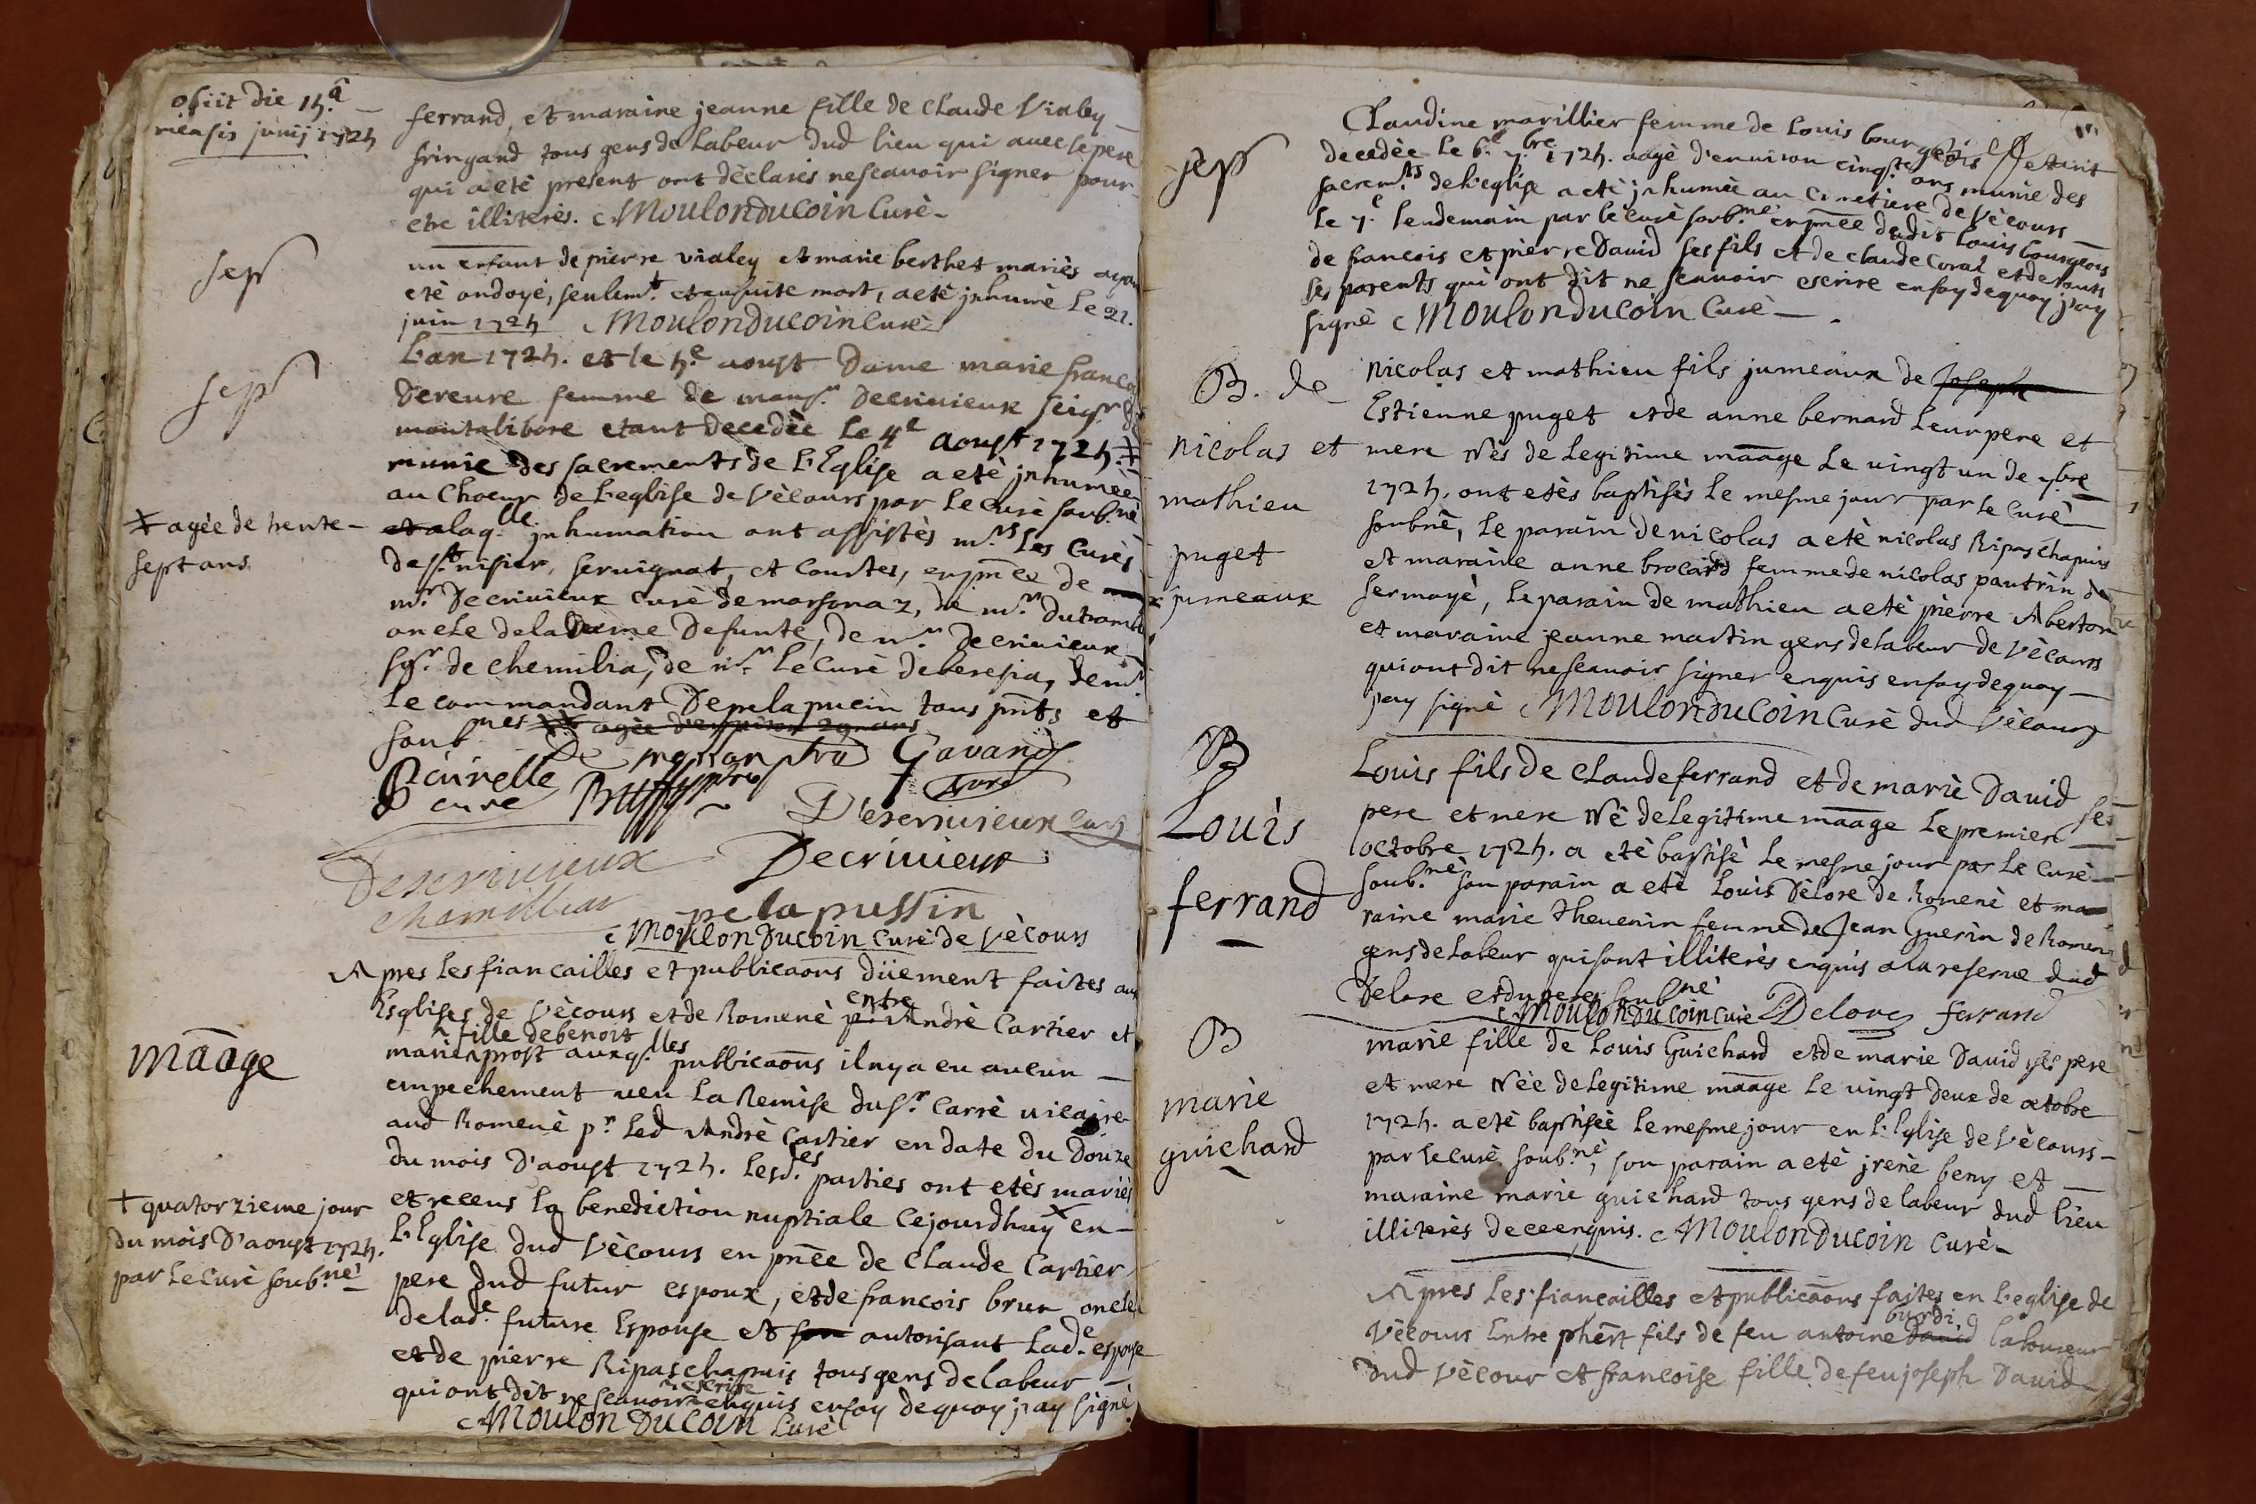 obiit die 14.a
mensis junij 1724
ferrand, et maraine jeanne fille de Claude Vialey
fringand tous gens de Labeur dud lieu qui avec le pere
qui a etè present ont dèclarès ne scavoir signer pour
etre illiterès. Moulonducoin Curè
sep
un enfant de pierre vialey et marie berthet mariès ayant
etè ondoyé, seulemt. et ensuite mort, a etè jnhumè Le 21.
juin 1724 Moulonducoin Curè
sep
L'an 1724. et le 5e aoust Dame marie franco
Dereure femme de mons.r Decrivieux seigr de
montalibore etant decedèe Le 4e aoust 1724 ‡
munie des sacrements de L'Eglise a etè jnhumèe
au Choeur de L'eglise de Vècours par le Curè soub.nè
et a laq.lle jnhumation ont assistès m.rs Les Curès
‡ agèe de trente
sept ans
de st. nisier, servignat, et Courtes, en pnce de
m.r Decrivieux Curè de marsonaz, de m.r dutramb
oncle de la Dame Defunte, de m.r Decrivieux
sgr. de chemilia, de m.r le Curè de beresia, de m.r
Le commandant Depelapucin tous pnts et
soub.nes agèe d'environ 29 ans
Gavand
curè
Decrivieux
Descrivieux
chamilliat
pelapussin
Moulonducoin Curè de Vècours
Maage
Apres Les fiancailles et publicaons düement faites aux
Esglises de Vècours et de Romenè entre Andrè Cartier et
marie fille de benoit prost auxq.lles publicaons il ny a eu aucun
empechement veu La Remise du s.r Carrè vicaire
aud Romenè p.r Led Andrè Cartier en date du Douze
du mois D'aoust 1724. Lesd.es parties ont etès mariès
et receus la benediction nuptiale Cejourdhuy x en
+ quatorzieme jour
du mois D'aoust 1724.
par Le Curè soub.nè
L'Eglise dud Vècours en pnce de Claude Cartier
pere dud futur espoux, et de francois brun oncle
de lad.e future Espouse et autorisant Lad.e espouse
et de pierre Ripaschapuis tous gens de Labeur
qui ont dit ne scavoir escrire enquis en foy de quoy j'ay signè
Moulon Ducoin Curè
sep
Claudine marillier femme de Louis bourgeois etant
decedèe Le 6.e 7.bre 1724. aagè d'environ cinq.te ans munie des
sacrem.ts de L'eglise a etè jnhumèe au Cimetiere de Vècours
Le 7.e lendemain par le Curè soub.nè en pnce dudit Louis bourgeois
de francois et pierre David ses fils et de Claude Coral et de touts
ses parents qui ont dit ne scavoir escrire en foy de quoy j'ay
signè Moulonducoin Curè
B. de
nicolas et
mathieu
puget
jumeaux
Nicolas et mathieu fils jumeaux de Joseph
Estienne puget et de anne bernard Leur pere et
mere Nès de Legitime maage Le vingt un de 7bre
1724. ont etès baptisès Le mesme jour par le Curè
soubnè, Le parain de nicolas a etè nicolas Ripaschapuis
et maraine anne brocard femme de nicolas pautrin de
sermoyè, Le parain de mathieu a etè pierre Aberton
et maraine jeanne martin gens de labeur de Vècours
qui ont dit ne scavoir signer enquis en foy de quoy
j'ay signè Moulonducoin Curè dud Vècours
B
Louis
ferrand
Louis fils de Claude ferrand et de marie David ses
pere et mere Nè de Legitime maage Le premier
octobre 1724. a etè baptisè Le mesme jour par Le Curè
soub.nè son parain a etè Louis Dèlore de Romenè et ma
raine marie thevenin femme de Jean Guerin de Romenè
gens de Labeur qui sont illiterès enquis a la reserve dud
Delore et du pere soub.nè
Moulonducoin Curè Delore ferrand
B
marie
guichard
marie fille de Louis Guichard et de marie David ses pere
et mere Nèe de Legitime maage Le vingt deux de octobre
1724. a etè baptisèe Le mesme jour en L'Eglise de Vècours
par le Curè soub.nè, son parain a etè jrenè beny et
maraine marie guichard tous gens de labeur dud lieu
illiterès de ce enquis. Moulonducoin Curè
Apres Les fiancailles et publicaons faites en L'eglise de
Vècours Entre phbert fils de feu antoine David burdi laboureur
dud Vècour et francoise fille de feu joseph David